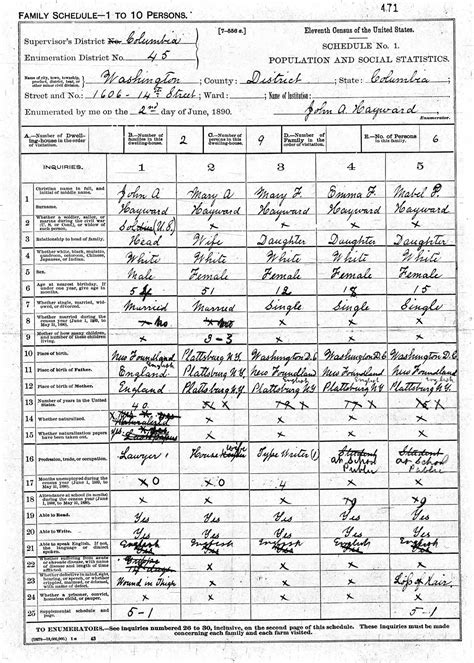 471
FAMILY SCHEDULE—1 TO 10 PERSONS.
[7-556 c.]
Eleventh Census of the United States.
Supervisor's District No. Columbia
SCHEDULE No. 1.
Enumeration District No. 45
POPULATION AND SOCIAL STATISTICS.
Name of city, town, township, precinct, district, beat, or other minor civil division. Washington ; County: District ; State: Columbia
Street and No.: 1606-14th Street ; Ward: ; Name of Institution:
Enumerated by me on the 2nd day of June, 1890. John A. Hayward
Enumerator.
A.—Number of Dwelling-house in the order of visitation. B.—Number of families in this dwelling-house. 2 C.—Number of persons in this dwelling-house. 9 D.—Number of Family in the order of visitation. E.—No. of Persons in this family. 6
INQUIRIES. 1 2 3 4 5
1 Christian name in full, and initial of middle name. John A Mary A Mary F. Emma F. Mabel P.
Surname. Hayward Hayward Hayward Hayward Hayward
2 Whether a soldier, sailor, or marine during the civil war (U.S. or Conf.), or widow of such person. Soldier (U.S.) x x x x
3 Relationship to head of family. Head Wife Daughter Daughter Daughter
4 Whether white, black, mulatto, quadroon, octoroon, Chinese, Japanese, or Indian. White White White White White
5 Sex. Male Female Female Female Female
6 Age at nearest birthday. If under one year, give age in months. 51 18 15
7 Whether single, married, widowed, or divorced. Married Married Single Single Single
8 Whether married during the census year (June 1, 1889, to May 31, 1890). No x x x
9 Mother of how many children, and number of these children living. x 3-3 x x x
10 Place of birth. New Foundland Plattsburg N.Y. Washington D.C Washington D.C. Washington D.C.
11 Place of birth of Father. England Plattsburg N.Y. New Foundland New Foundland New Foundland
12 Place of birth of Mother. England Plattsburg N.Y. Plattsburg N.Y. Plattsburg N.Y. Plattsburg N.Y.
13 Number of years in the United States. 40 x x x
14 Whether naturalized. x x x x
15 Whether naturalization papers have been taken out. x x x x
16 Profession, trade, or occupation. Lawyer House wife Type Writer Student at School Public Student at School Public
17 Months unemployed during the census year (June 1, 1889, to May 31, 1890). 0 0 4 x x
18 Attendance at school (in months) during the census year (June 1, 1889, to May 31, 1890). x x x 9 9
19 Able to Read. Yes Yes Yes Yes Yes
20 Able to Write. Yes Yes Yes Yes Yes
21 Able to speak English. If not, the language or dialect spoken. English English English English English
22 Whether suffering from acute or chronic disease, with name of disease and length of time afflicted. x x x
23 Whether defective in mind, sight, hearing, or speech, or whether crippled, maimed, or deformed, with name of defect. Wound in Thigh x x x Loss of Hair
24 Whether a prisoner, convict, homeless child, or pauper. x x x x x
25 Supplemental schedule and page. 5-1 5-1
TO ENUMERATORS.—See inquiries numbered 26 to 30, inclusive, on the second page of this schedule. These inquiries must be made concerning each family and each farm visited.